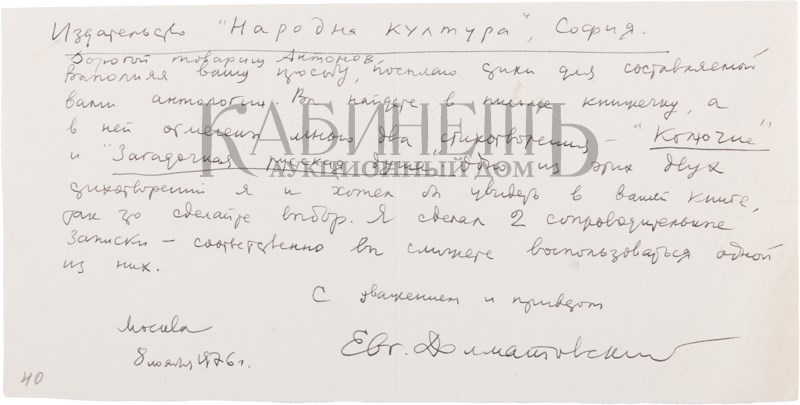 Издательство "Народна култура", София.
Дорогой товарищ Антонов,
Выполняя вашу просьбу, посылаю стихи для составляемой
вами антологии. Вы найдете в письме книжечку, а
в ней отмечены мною два стихотворения – "Колючие"
и "Загадочная русская душа". Одно из этих двух
стихотворений я и хотел бы увидеть в вашей книге,
так что сделайте выбор. Я сделал 2 сопроводительные
записки – соответственно вы сможете воспользоваться одной
из них.
С уважением и приветом
Москва
Евг. Долматовский
8 1976 г.
40
КАБИНЕТЪ
АУКЦИОННЫЙ ДОМ